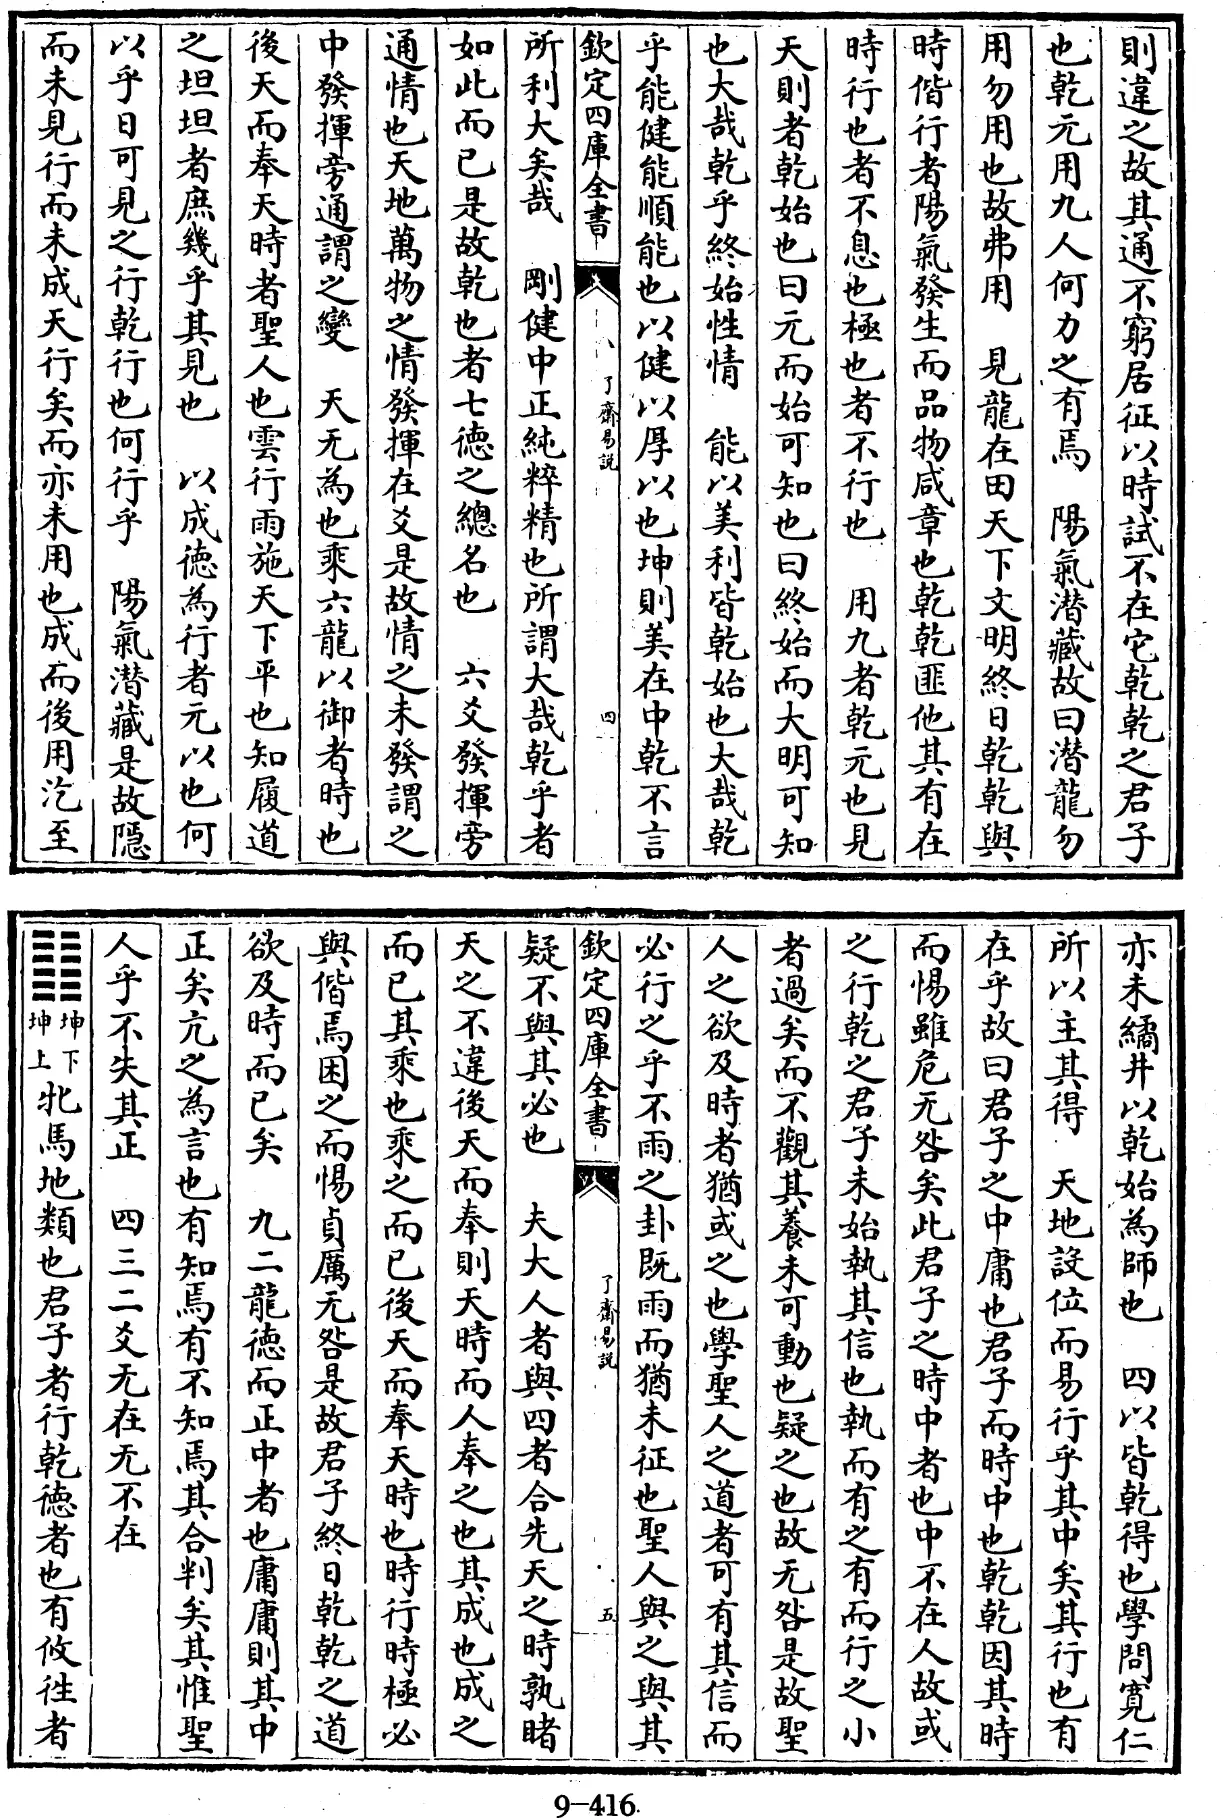 則違之故其通不窮居征以時試不在它乾乾之君子
也乾元用九人何力之有焉　陽氣潛藏故曰潛龍勿
用勿用也故弗用　見龍在田天下文明終日乾乾與
時偕行者陽氣發生而品物咸章也乾乾匪他其有在
時行也者不息也極也者不行也　用九者乾元也見
天則者乾始也曰元而始可知也曰終始而大明可知
也大哉乾乎終始性情　能以美利皆乾始也大哉乾
乎能健能順能也以健以厚以也坤則美在中乾不言
欽定四庫全書
了齋易說
四
所利大矣哉　剛健中正純粹精也所謂大哉乾乎者
如此而已是故乾也者七德之總名也　六爻發揮旁
通情也天地萬物之情發揮在爻是故情之未發謂之
中發揮旁通謂之變　天无為也乘六龍以御者時也
後天而奉天時者聖人也雲行雨施天下平也知履道
之坦坦者庶幾乎其見也　以成德為行者元以也何
以乎日可見之行乾行也何行乎　陽氣潛藏是故隱
而未見行而未成天行矣而亦未用也成而後用汔至
亦未繘井以乾始為師也　四以皆乾得也學問寬仁
所以主其得　天地設位而易行乎其中矣其行也有
在乎故曰君子之中庸也君子而時中也乾乾因其時
而惕雖危无咎矣此君子之時中者也中不在人故或
之行乾之君子未始執其信也執而有之有而行之小
者過矣而不觀其養未可動也疑之也故无咎是故聖
人之欲及時者猶或之也學聖人之道者可有其信而
必行之乎不雨之卦既雨而猶未征也聖人與之與其
欽定四庫全書
了齋易說
五
疑不與其必也　夫大人者與四者合先天之時孰睹
天之不違後天而奉則天時而人奉之也其成也成之
而已其乘也乘之而已後天而奉天時也時行時極必
與偕焉困之而惕貞厲无咎是故君子終日乾乾之道
欲及時而已矣　九二龍德而正中者也庸庸則其中
正矣亢之為言也有知焉有不知焉其合判矣其惟聖
人乎不失其正　四三二爻无在无不在
䷁坤下坤上牝馬地類也君子者行乾德者也有攸往者
9-416